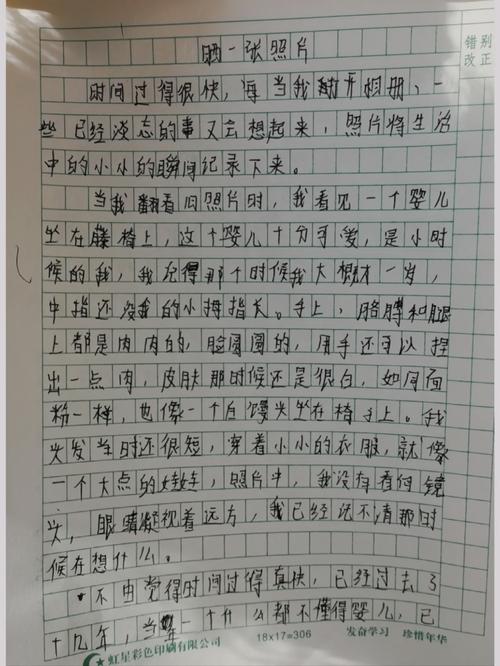 晒一张照片
错别
改正
时间过得很快，每当我翻开相册、一
些已经淡忘的事又会想起来，照片将生活
中的小小的瞬间记录下来。
当我翻看旧照片时，我看见一个婴儿
坐在藤椅上，这个婴儿十分可爱，是小时
候的我，我记得那个时候我大概才一岁，
中指还没我的小拇指长。手上，胳膊和腿
上都是肉肉的，脸圆圆的，用手还可以捏
出一点肉，皮肤那时候还是很白，如同面
粉一样，也像一个白馒头坐在椅子上。我
头发当时还很短，穿着小小的衣服，就像
一个大点的娃娃，照片中，我没有看向镜
头，眼睛凝视着远方，我已经记不清那时
候在想什么。
不由觉得时间过得真快，已经过去了
十九年，当年一个什么都不懂得婴儿，已
虹星彩色印刷有限公司 18×17=306 发奋学习 珍惜年华